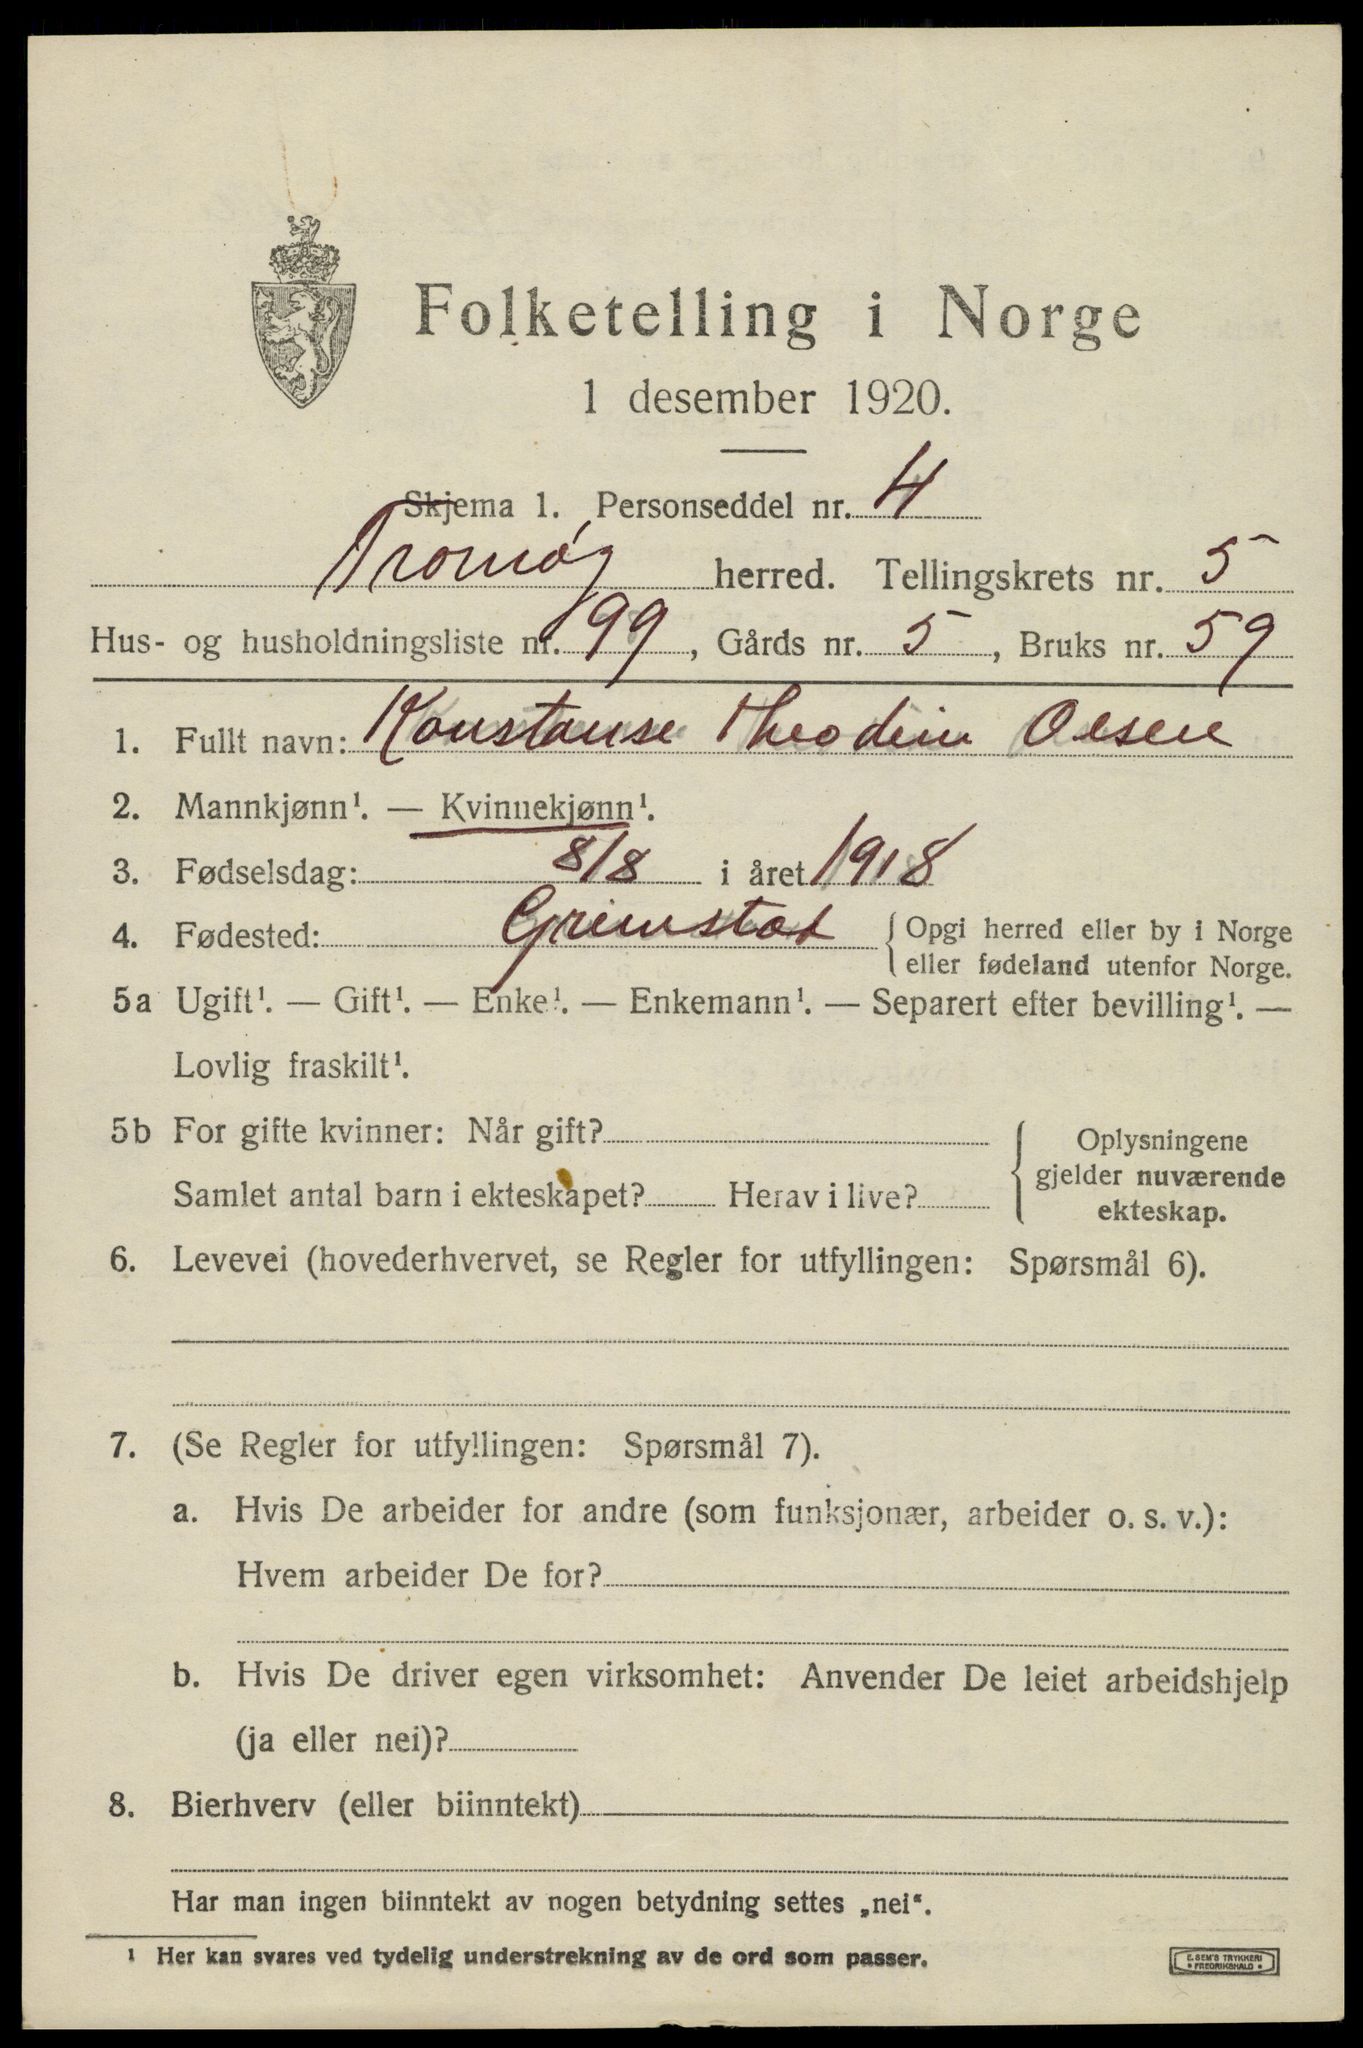 Folketelling i Norge
1 desember 1920.
Skjema 1. Personseddel nr. 4
Tromøy herred. Tellingskrets nr. 5
Hus- og husholdningsliste nr. 99, Gårds nr. 5, Bruks nr. 59
1. Fullt navn: Konstanse Theodine Olsen
2. Mannkjønn¹. — Kvinnekjønn¹.
3. Fødselsdag: 8/8 i året 1918
4. Fødested: Grimstad { Opgi herred eller by i Norge
eller fødeland utenfor Norge.
5a Ugift¹. — Gift¹. — Enke¹. — Enkemann¹. — Separert efter bevilling¹. —
Lovlig fraskilt¹.
5b For gifte kvinner: Når gift?
Samlet antal barn i ekteskapet? Herav i live?
Oplysningene
gjelder nuværende
ekteskap.
6. Levevei (hovederhvervet, se Regler for utfyllingen: Spørsmål 6).
7. (Se Regler for utfyllingen: Spørsmål 7).
a. Hvis De arbeider for andre (som funksjonær, arbeider o. s. v.):
Hvem arbeider De for?
b. Hvis De driver egen virksomhet: Anvender De leiet arbeidshjelp
(ja eller nei)?
8. Bierhverv (eller biinntekt)
Har man ingen biinntekt av nogen betydning settes „nei“.
¹ Her kan svares ved tydelig understrekning av de ord som passer.
E. SEM'S TRYKKERI
• FREDRIKSHALD •